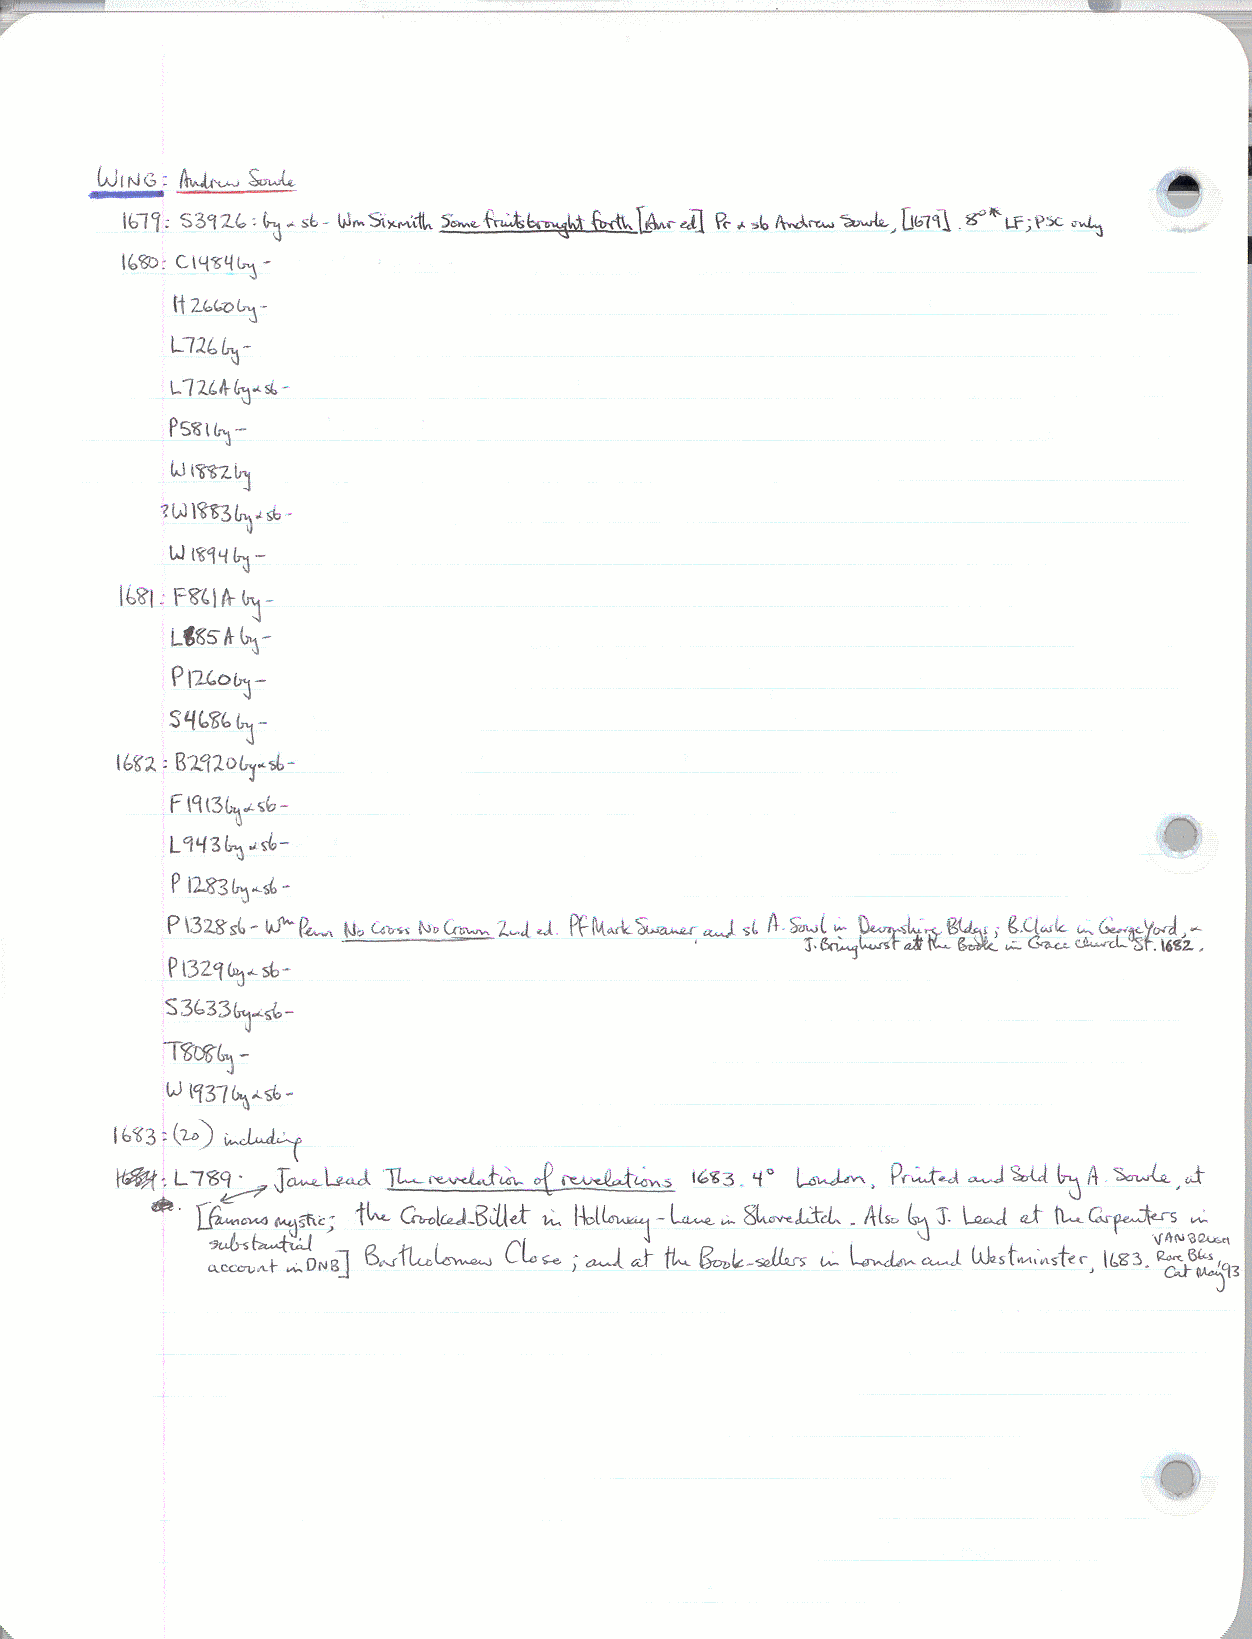 WING: Andrew Sowle
1679: S3926: by & sb - Wm Sixmith Some fruits brought forth [Anr ed] Pr & sb Andrew Sowle, [1679]. 8°* LF; PSC only
1680: C1484 by -
H2660 by -
L726 by -
L726A by & sb -
P581 by -
W1882 by
?W1883 by & sb -
W1894 by -
1681: F861A by -
L885A by -
P1260 by -
S4686 by -
1682: B2920 by & sb -
F1913 by & sb -
L943 by & sb -
P1283 by & sb -
P1328 sb - Wm Penn No Cross No Crown 2nd ed. PF Mark Swaner, and sb A. Sowl in Devonshire Bldgs; B. Clark in George Yard, &
J. Bringhurst at the Book in Grace Church St. 1682.
P1329 by & sb -
S3633 by & sb -
T808 by -
W1937 by & sb -
1683: (20) including
L789. Jane Lead The revelation of revelations 1683. 4° London, Printed and Sold by A. Sowle, at
[famous mystic; the Crooked-Billet in Holloway-Lane in Shoreditch. Also by J. Lead at the Carpenters in
substantial VANBRUGH
account in DNB] Bartholomew Close; and at the Book-sellers in London and Westminster, 1683. Rare Bks,
Cat May '93